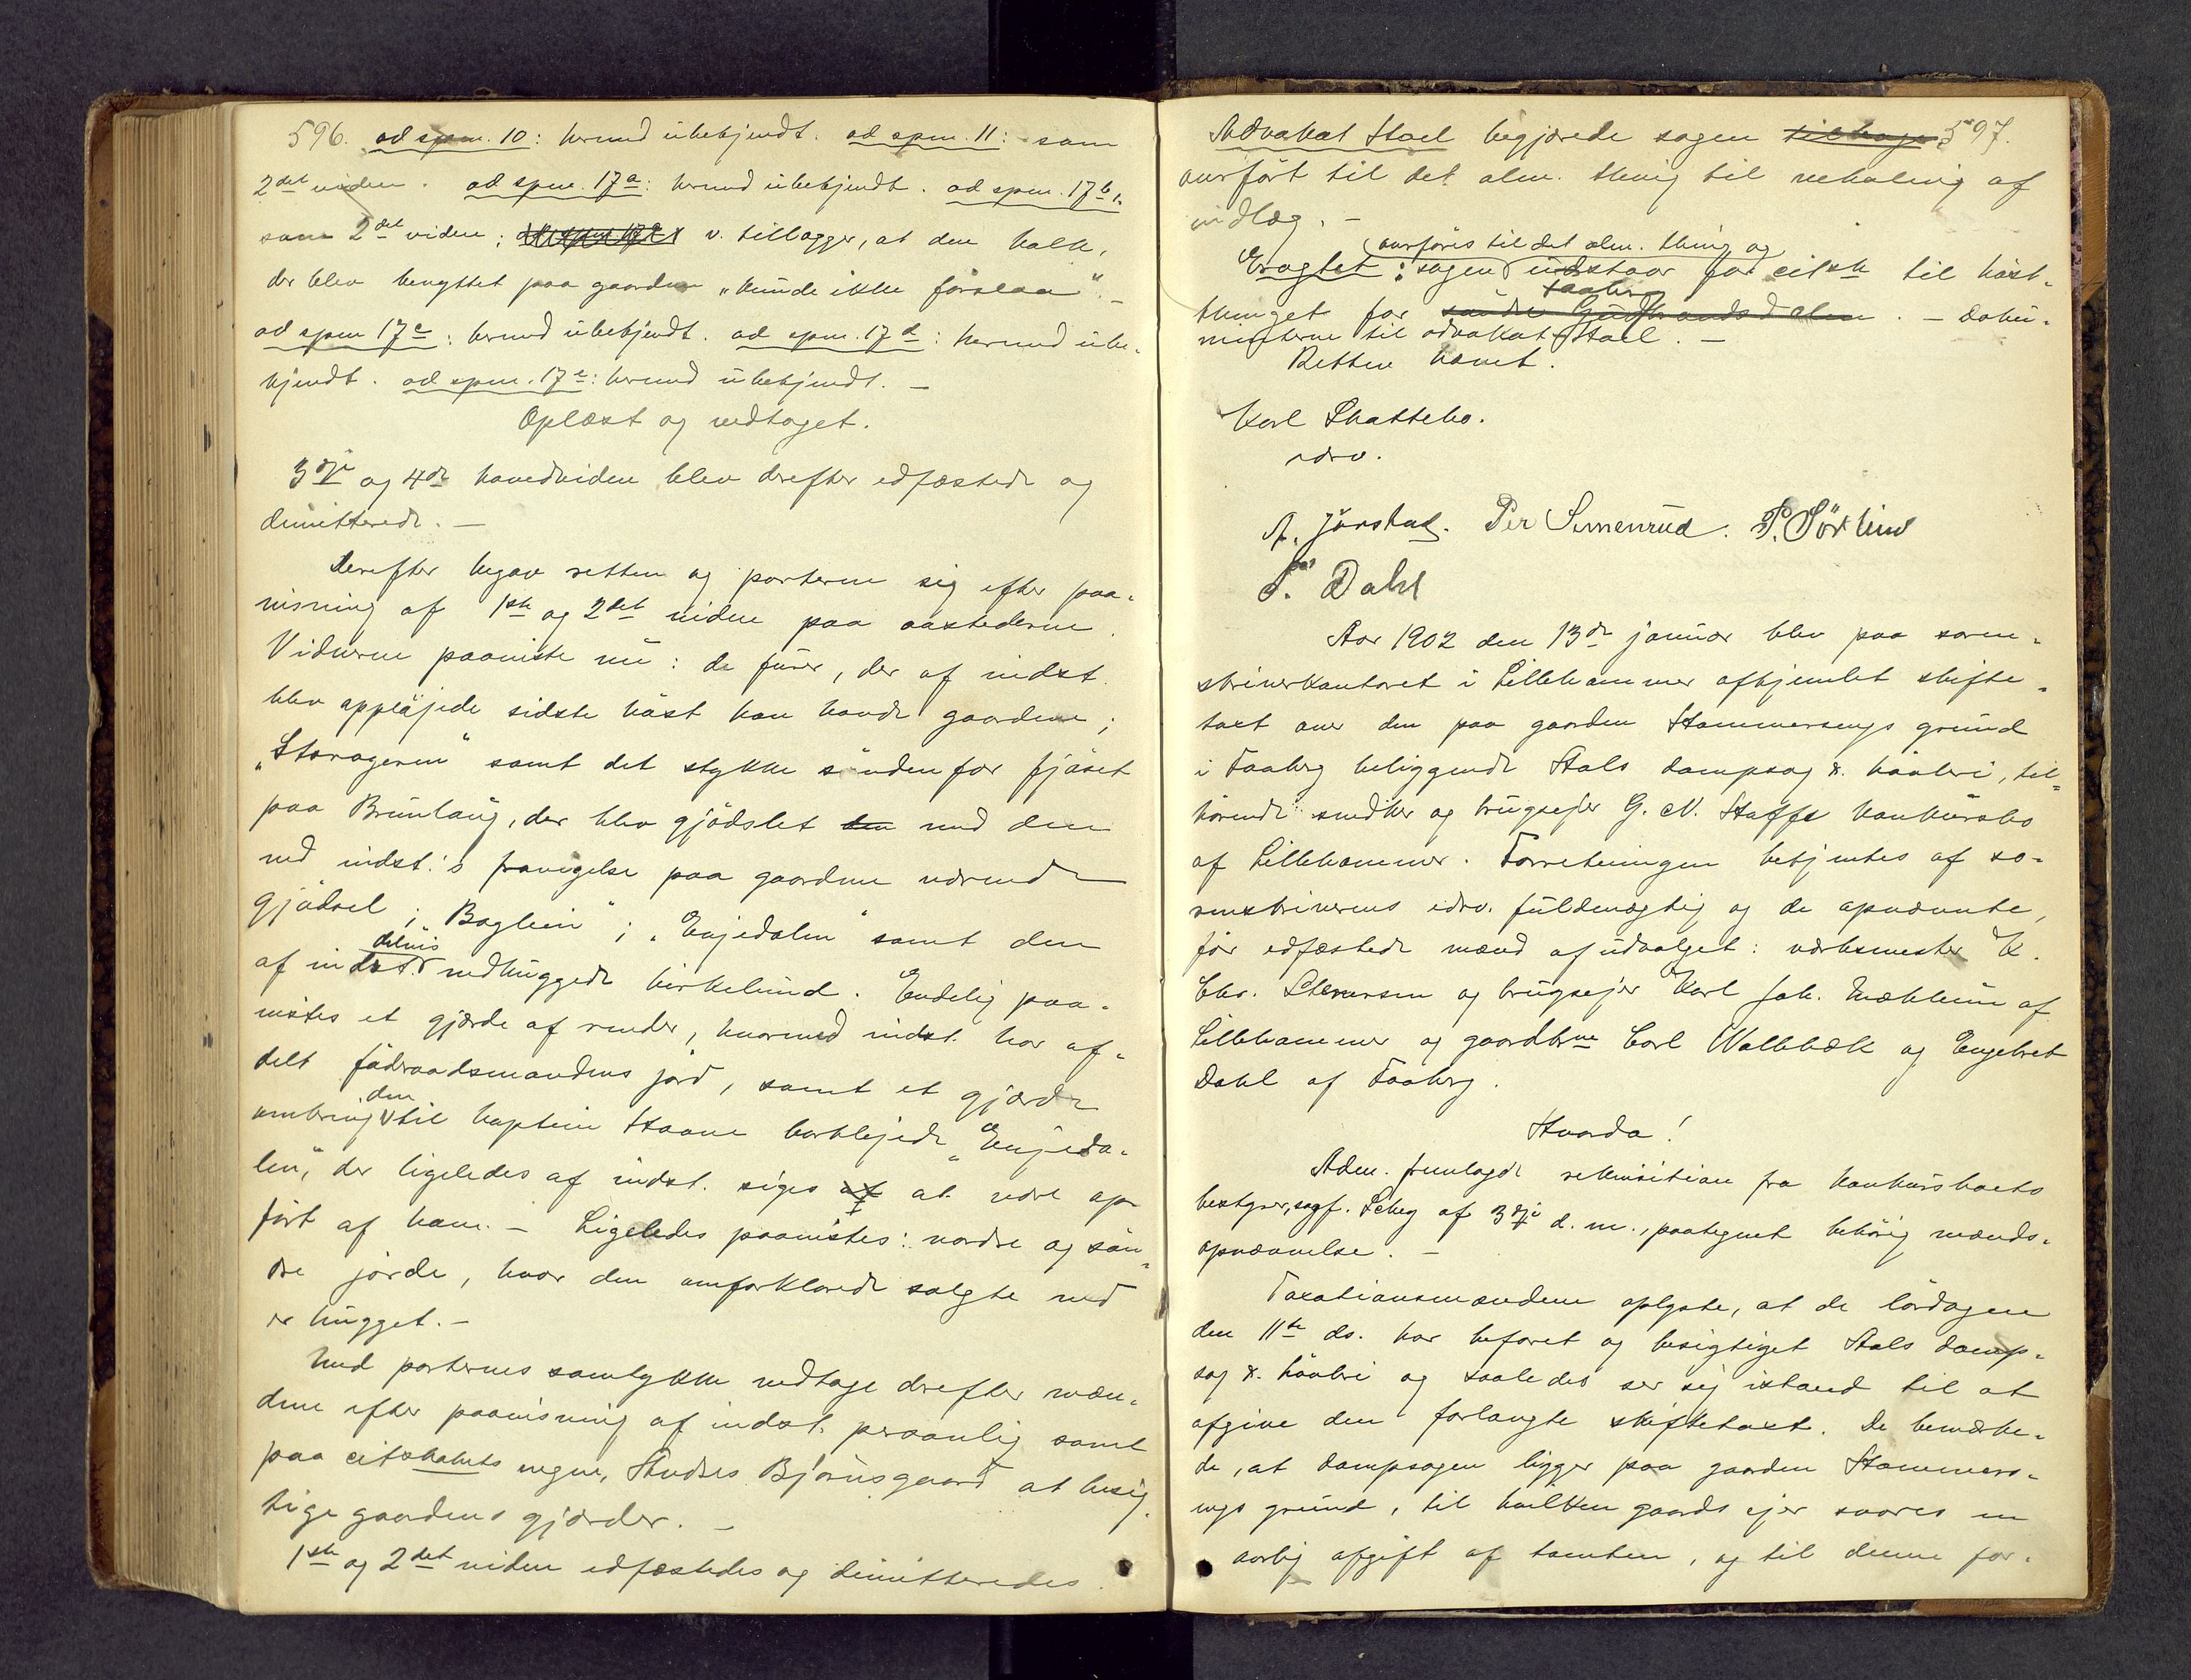 596. ad spm. 10: hermed ubekjendt. ad spm. 11: som
2det vidne. ad spm. 17a: hermed ubekjendt. ad spm. 17b.
som 2det vidne; v. tillægger, at den kalk,
der blev benyttet paa gaarden „kunde ikke forslaa“. –
ad spm 17c: hermed ubekjendt. ad spm. 17d: hermed ube-
kjendt. ad spm. 17e: hermed ubekjendt. –
Oplæst og vedtaget.
3dje og 4de hovedvidne blev derefter edfæstede og
dimitterede. –
Derefter begav retten og parterne sig efter paa-
visning af 1ste og 2det vidne paa aastederne.
Vidnerne paaviste nu: de furer, der af indst.
blev oppløjede sidste høst han havde gaarden;
„Storageren“ samt det stykke søndenfor fjøset
paa Brunlaug, der blev gjødslet den med den
ved indst.'s fravigelse paa gaarden værende
gjødsel; „Baglien“; „Enjedalen“ samt den
af indst. delvis nedhuggede birkelund. Endelig paa-
vistes et gjærde af render, hvormed indst. har af-
delt føderaadsmandens jord, samt et gjærde
omkring den til kaptein Staane bortlejede „Enjeda-
len“, der ligeledes af indst. siges af at være op-
ført af ham. – Ligeledes paavistes: nordre og søn-
dre jorde, hvor den omforklarede solgte ved
er hugget. –
Med parternes samtykke vedtage derefter mæn-
dene efter paavisning af indst. personlig samt
paa citskabets vegne, Andres Bjørnsgaard at besig-
tige gaardens gjærder. –
1ste og 2det vidne edfæstedes og dimitteredes.
Advokat Stael begjærede sagen tilbage 597.
overført til det alm. thing til vehaling af
indlæg. –
Eragtet: sagen overføres til det alm. thing og udstaar for citsk til høst-
thinget for søndre Gudbrandsdalen Faaberg. – Doku-
menterne til advokat Stael. –
Retten hævet.
Karl Skattebo.
edsv.
A. Jørstad. Per Simenrud. P. Sørlien
P. Dahl
Aar 1902 den 13de januar blev paa soren-
skriverkontoret i Lillehammer afhjemlet skifte-
taxt over den paa gaarden Stammersengs grund
i Faaberg beliggende Stals dampsag & høvleri, til-
hørende snedker og brugsejer G. N. Staffs konkursbo
af Lillehammer. Forretningen betjentes af so-
renskriverens edsv. fuldmægtig og de opnævnte,
før edfæstede mænd af udvalget: værksmester K.
Chr. Stenersen og brugsejer Karl Joh. Mæhlum af
Lillehammer og gaardbrne Carl Wallebæk og Engebret
Dahl af Faaberg.
Hvorda!
Adm. fremlagde rekvisition fra konkursboets
bestyrer, sagf. Schey af 3dje d. m., paategnet behørig mænds-
opnævnelse. –
Taxationsmændene oplyste, at de lørdagen
den 11te ds. har befaret og besigtiget Stals damp-
sag & høvleri og saaledes ser sig istand til at
afgive den forlangte skiftetaxt. De bemærke-
de, at dampsagen ligger paa gaarden Stammers-
engs grund, til hvilken gaards ejer svares en
aarlig afgift af tomten, og til denne for-